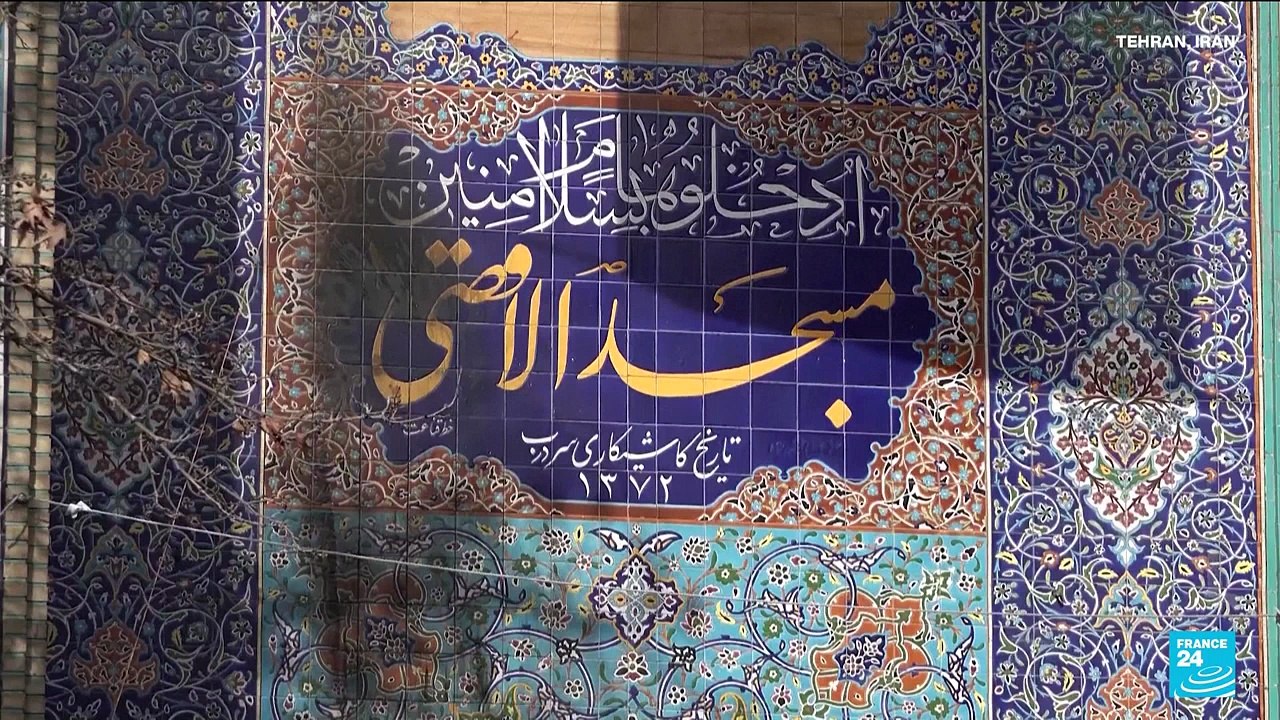 TEHRAN, IRAN
ادخلوها بسلام آمنین
مسجد الاقصی
تاریخ کاشیکاری سردرب
۱۳۷۲
FRANCE
24